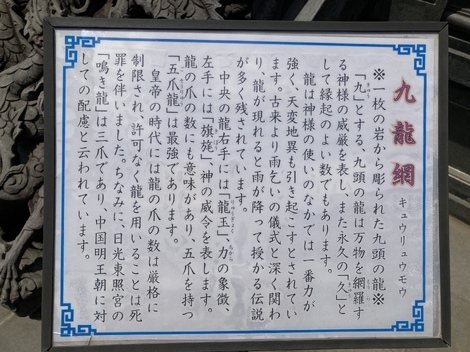 九龍網 キュウリュウモウ
※一枚の岩から彫られた九頭の龍※
「九」とする、九頭の龍は万物を網羅す
る神様の威厳を表し、また永久の「久」と
して縁起のよい数でもあります。
龍は神様の使いのなかでは一番力が
強く、天変地異も引き起こすとされてい
ます。古来より雨乞いの儀式と深く関わ
り、龍が現れると雨が降って授かる伝説
が多く残されています。
中央の龍右手には「龍玉」力の象徴、
左手には「旗旄」、神の威令を表します。
龍の爪の数にも意味があり、五爪を持つ
「五爪龍」は最強であります。
皇帝の時代には龍の爪の数は厳格に
制限され、許可なく龍を用いることは死
罪を伴いました。ちなみに、日光東照宮の
「鳴き龍」は三爪であり、中国明王朝に対
しての配慮と云われています。